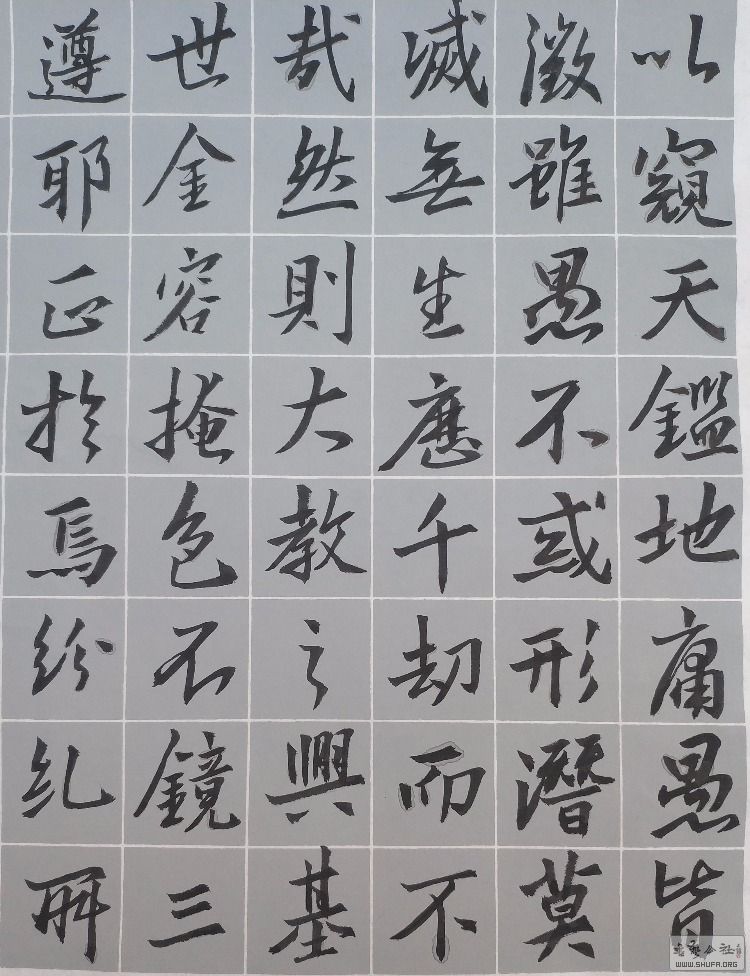 以窺天鑑地庸愚皆
徵雖愚不惑形潛莫
滅無生歷千劫而不
哉然則大教之興基
世金容掩色不鏡三
遵耶正於焉紛糺所
WWW.SHUFA.ORG